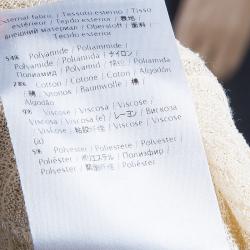 External fabric / Tessuto esterno / Tissu
extérieur / Tejido exterior / 表地
внешний материал / Oberstoff / 面料 /
Tecido exterior
54% Polyamide / Poliammide /
Polyamide / Poliamida / ナイロン /
Полиамид / Polyamid / 锦纶 / Poliamida
28% Cotton / Cotone / Coton / Algodón
/ 綿 / Хлопок / Baumwolle / 棉 /
Algodão
9% Viscose / Viscosa / Viscose /
Viscosa / Viscosa (e) / レーヨン / Вискоза
/ Viskose / 粘胶纤维 / Viscose / Viscose
(a)
Polyester / Poliestere / Polyester /
Poliéster / ポリエステル / Полиэфир /
Polyester / 聚酯纤维 / Poliéster